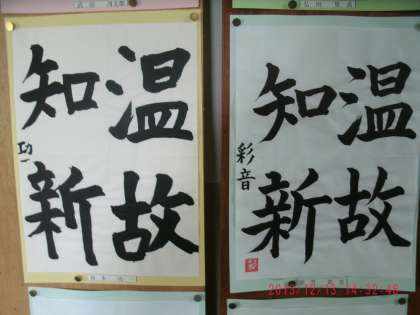 温故
知新
功一
温故
知新
彩音
2015/12/13 14:32:48